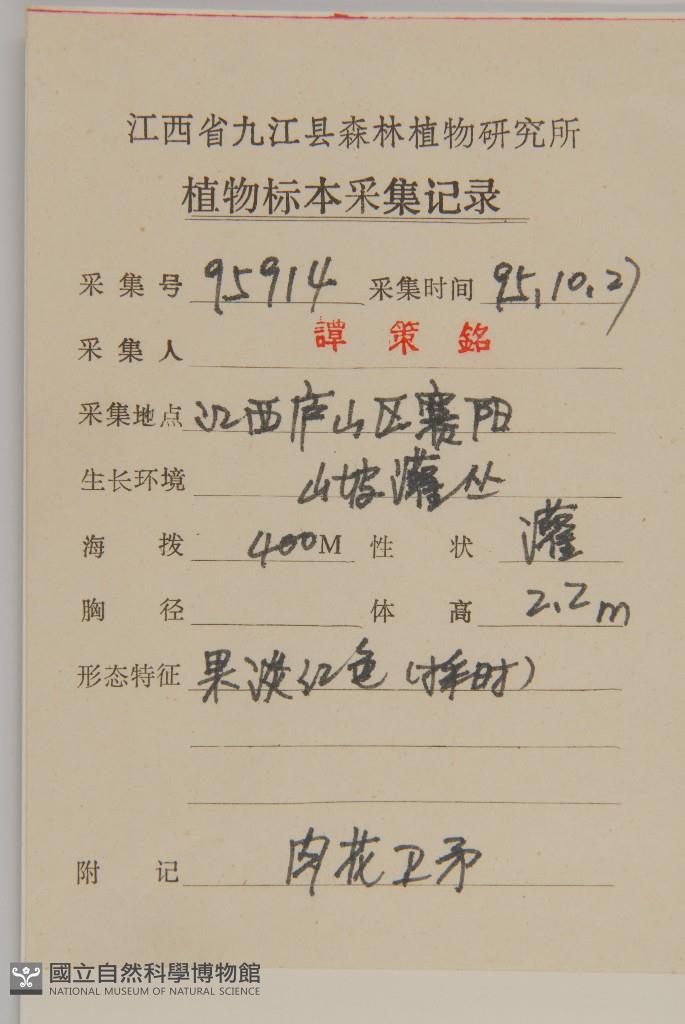 江西省九江县森林植物研究所
植物标本采集记录
采集号 95914 采集时间 95.10.27
采集人 譚策銘
采集地点 江西庐山区襄阳
生长环境 山坡灌丛
海拨 400M 性状 灌
胸径 体高 2.2m
形态特征 果淡红色(采时)
附记 肉花卫矛
國立自然科學博物館
NATIONAL MUSEUM OF NATURAL SCIENCE